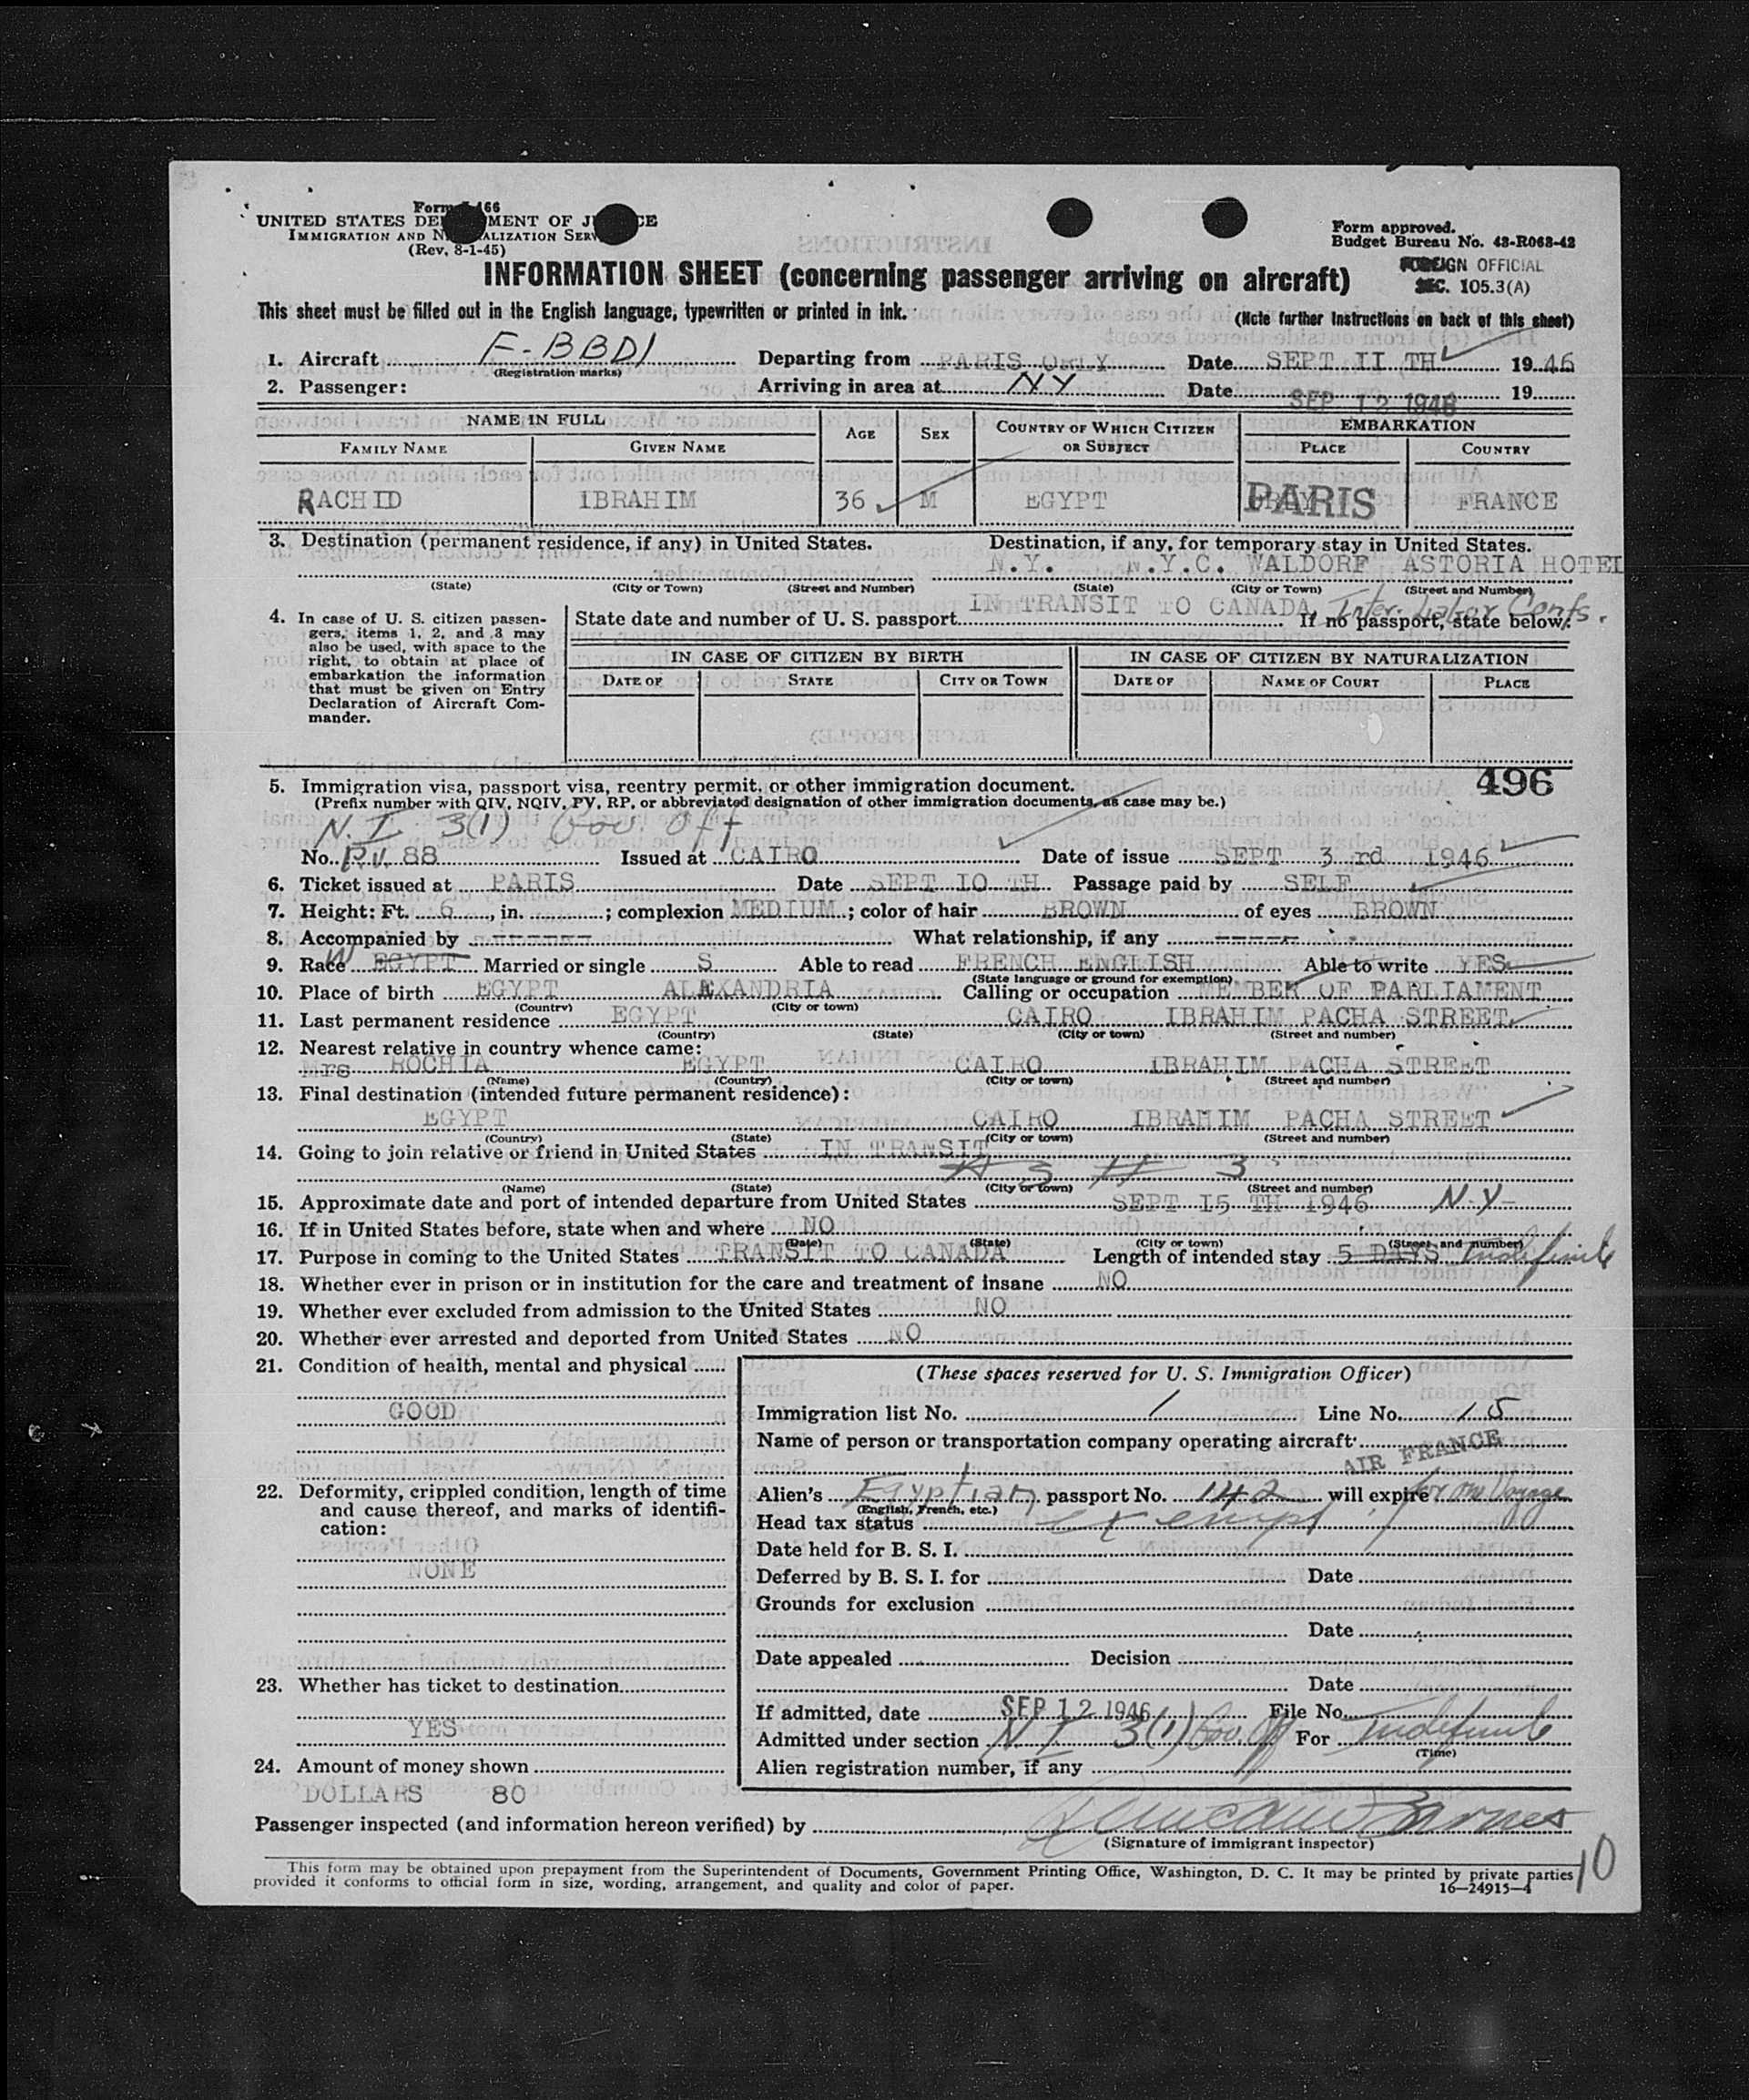 Form I-466
UNITED STATES DEPARTMENT OF JUSTICE
IMMIGRATION AND NATURALIZATION SERVICE
(Rev. 8-1-45)
Form approved.
Budget Bureau No. 43-R063-42
INFORMATION SHEET (concerning passenger arriving on aircraft)
FOREIGN OFFICIAL
SEC. 105.3(A)
This sheet must be filled out in the English language, typewritten or printed in ink.
(Note further instructions on back of this sheet)
1. Aircraft F-BBDI Departing from PARIS ORLY Date SEPT II TH 1946
(Registration marks)
2. Passenger: Arriving in area at NY Date SEP 12 1946 19
NAME IN FULL AGE SEX COUNTRY OF WHICH CITIZEN OR SUBJECT EMBARKATION
FAMILY NAME GIVEN NAME PLACE COUNTRY
RACHID IBRAHIM 36 M EGYPT PARIS FRANCE
3. Destination (permanent residence, if any) in United States. Destination, if any, for temporary stay in United States.
N.Y. N.Y.C. WALDORF ASTORIA HOTEL
(State) (City or Town) (Street and Number) (State) (City or Town) (Street and Number)
IN TRANSIT TO CANADA, Inter. Labor Confs.
4. In case of U. S. citizen passengers, items 1, 2, and 3 may also be used, with space to the right, to obtain at place of embarkation the information that must be given on Entry Declaration of Aircraft Commander.
State date and number of U. S. passport If no passport, state below:
IN CASE OF CITIZEN BY BIRTH IN CASE OF CITIZEN BY NATURALIZATION
DATE OF STATE CITY OR TOWN DATE OF NAME OF COURT PLACE
496
5. Immigration visa, passport visa, reentry permit, or other immigration document.
(Prefix number with QIV, NQIV, PV, RP, or abbreviated designation of other immigration documents, as case may be.)
N. I 3(1) Gov. Off
No. P.V. 88 Issued at CAIRO Date of issue SEPT 3 rd 1946
6. Ticket issued at PARIS Date SEPT IO TH Passage paid by SELF
7. Height: Ft. 6, in. ; complexion MEDIUM; color of hair BROWN of eyes BROWN
8. Accompanied by ------ What relationship, if any -----
9. Race W EGYPT Married or single S Able to read FRENCH ENGLISH Able to write YES
(State language or ground for exemption)
10. Place of birth EGYPT ALEXANDRIA Calling or occupation MEMBER OF PARLIAMENT
(Country) (City or town)
11. Last permanent residence EGYPT CAIRO IBRAHIM PACHA STREET
(Country) (State) (City or town) (Street and number)
12. Nearest relative in country whence came:
Mrs ROCHIA EGYPT CAIRO IBRAHIM PACHA STREET
(Name) (Country) (City or town) (Street and number)
13. Final destination (intended future permanent residence):
EGYPT CAIRO IBRAHIM PACHA STREET
(Country) (State) (City or town) (Street and number)
14. Going to join relative or friend in United States IN TRANSIT
3
(Name) (State) (City or town) (Street and number)
15. Approximate date and port of intended departure from United States SEPT I5 TH 1946 N-Y-
16. If in United States before, state when and where NO
(Date) (State) (City or town) (Street and number)
17. Purpose in coming to the United States TRANSIT TO CANADA Length of intended stay 5 DAYS Indefinite
18. Whether ever in prison or in institution for the care and treatment of insane NO
19. Whether ever excluded from admission to the United States NO
20. Whether ever arrested and deported from United States NO
21. Condition of health, mental and physical
GOOD
22. Deformity, crippled condition, length of time and cause thereof, and marks of identification:
NONE
23. Whether has ticket to destination
YES
24. Amount of money shown
DOLLARS 80
(These spaces reserved for U. S. Immigration Officer)
Immigration list No. 1 Line No. 15
Name of person or transportation company operating aircraft
AIR FRANCE
Alien's Egyptian passport No. 142 will expire for one Voyage
(English, French, etc.)
Head tax status exempt
Date held for B. S. I.
Deferred by B. S. I. for Date
Grounds for exclusion
Date
Date appealed Decision
Date
If admitted, date SEP 12 1946 File No.
Admitted under section N I 3(1) Gov. Off For Indefinite
(Time)
Alien registration number, if any
Passenger inspected (and information hereon verified) by
(Signature of immigrant inspector)
This form may be obtained upon prepayment from the Superintendent of Documents, Government Printing Office, Washington, D. C. It may be printed by private parties
provided it conforms to official form in size, wording, arrangement, and quality and color of paper.
16—24915-4
10